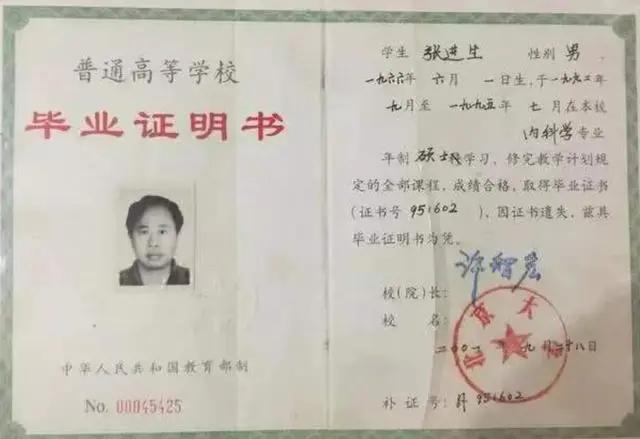 普通高等学校
毕业证明书
中华人民共和国教育部制
No. 00045425
学生 张进生 性别 男 ,
一九六六年 六月 一日生,于一九九二年
九月至 一九九五年 七月在本校
内科学专业
年制 硕士 学习,修完教学计划规
定的全部课程,成绩合格,取得毕业证书
(证书号 951602 ),因证书遗失,兹具
毕业证明书为凭。
校(院)长: 许智宏
校 名:
北京大学
二00 年九月二十八日
补证号: 951602